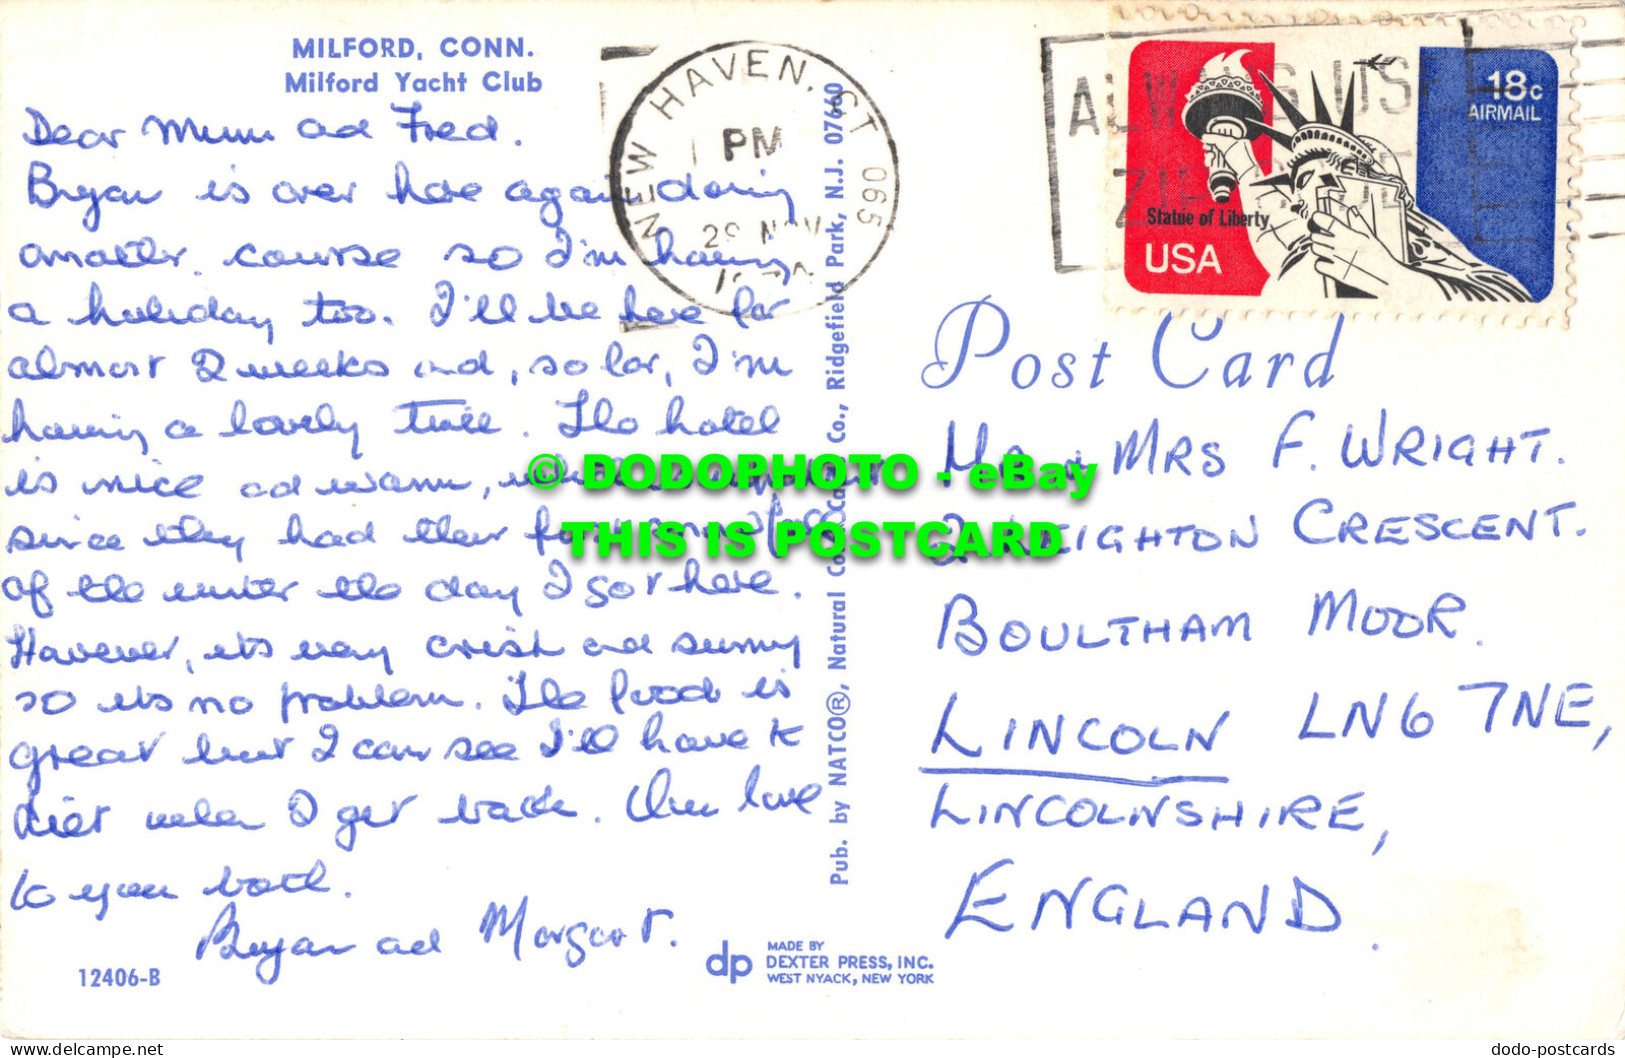 MILFORD, CONN.
Milford Yacht Club
Dear Mum ad Fred.
Bryan is over here again doing
another course so I'm having
a holiday too. I'll be here for
almost 2 weeks and, so far, I'm
having a lovely time. The hotel
is nice ad warm, which is
since they had their first snowfall
of the winter the day I got here.
However, its very crisp and sunny
so its no problem. The food is
great but I can see I'll have to
diet when I get back. Our love
to you both.
Bryan ad Margaret.
12406-B
Pub. by NATCO®, Natural Color Card Co., Ridgefield Park, N.J. 07660
dp
MADE BY
DEXTER PRESS, INC.
WEST NYACK, NEW YORK
NEW HAVEN, CT 065
PM
29 NOV
ALWAYS USE
ZIP CODE
18c
AIRMAIL
Statue of Liberty
USA
Post Card
Mr & MRS F. WRIGHT.
2 LEIGHTON CRESCENT.
BOULTHAM MOOR.
LINCOLN LN6 7NE,
LINCOLNSHIRE,
ENGLAND.
© DODOPHOTO - eBay
THIS IS POSTCARD
www.delcampe.net
dodo-postcards